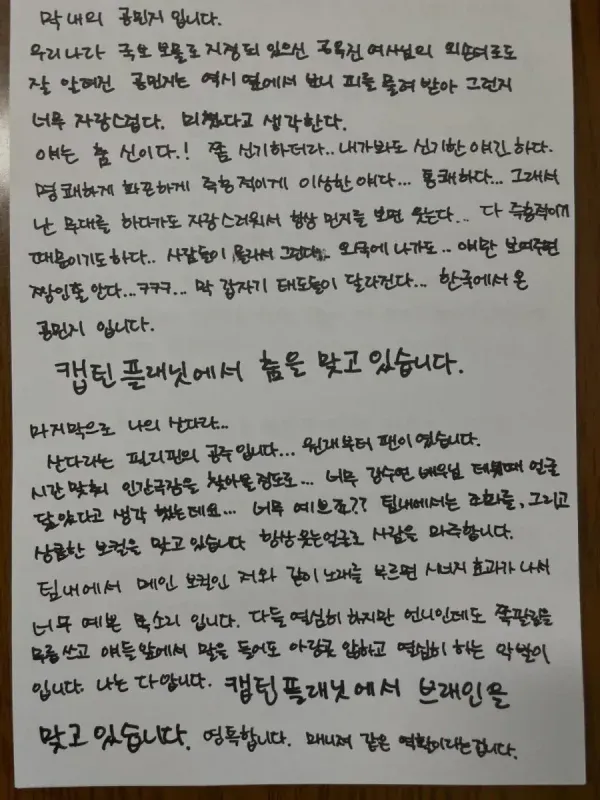 막내의 공민지 입니다.
우리나라 국보 보물로 지정되 있으신 공옥진 여사님의 외손녀로도
잘 알려진 공민지는 역시 옆에서 보니 피를 물려 받아 그런지
너무 자랑스럽다. 미쳤다고 생각한다.
얘는 춤 신이다.! 쫌 신기하더라.. 내가봐도 신기한 얘긴 하다.
명쾌하게 화끈하게 즉흥적이게 이상한 얘다... 통쾌하다... 그래서
난 무대를 하다가도 자랑스러워서 항상 민지를 보면 웃는다... 다 즉흥적이기
때문이기도하다.. 사람들이 몰라서 그런다.. 외국에 나가도.. 얘만 보여주면
짱인줄 안다...ㅋㅋㅋ... 막 갑자기 태도들이 달라진다... 한국에서 온
공민지 입니다.
캡틴 플래닛에서 춤을 맞고 있습니다.
마지막으로 나의 산다라...
산다라는 필리핀의 공주입니다... 원래부터 팬이였습니다.
시간 맞춰 인간극장을 찾아볼 정도로... 너무 강수연 배우님 데뷔때 얼굴
닮았다고 생각 했는데요... 너무 예쁘죠?? 팀내에서는 조화를, 그리고
상큼한 보컬을 맞고 있습니다 항상웃는얼굴로 사람을 마주합니다.
팀내에서 메인 보컬인 저와 같이 노래를 부르면 시너지 효과가 나서
너무 예쁜 목소리 입니다. 다들 열심히 하지만 언니인데도 쪽팔림을
무릅쓰고 얘들앞에서 말을 들어도 아랑곳 않하고 열심히 하는 악발이
입니다. 나는 다 압니다. 캡틴플래닛에서 브레인을
맞고 있습니다. 영특합니다. 매니져 같은 역할이라는겁니다.